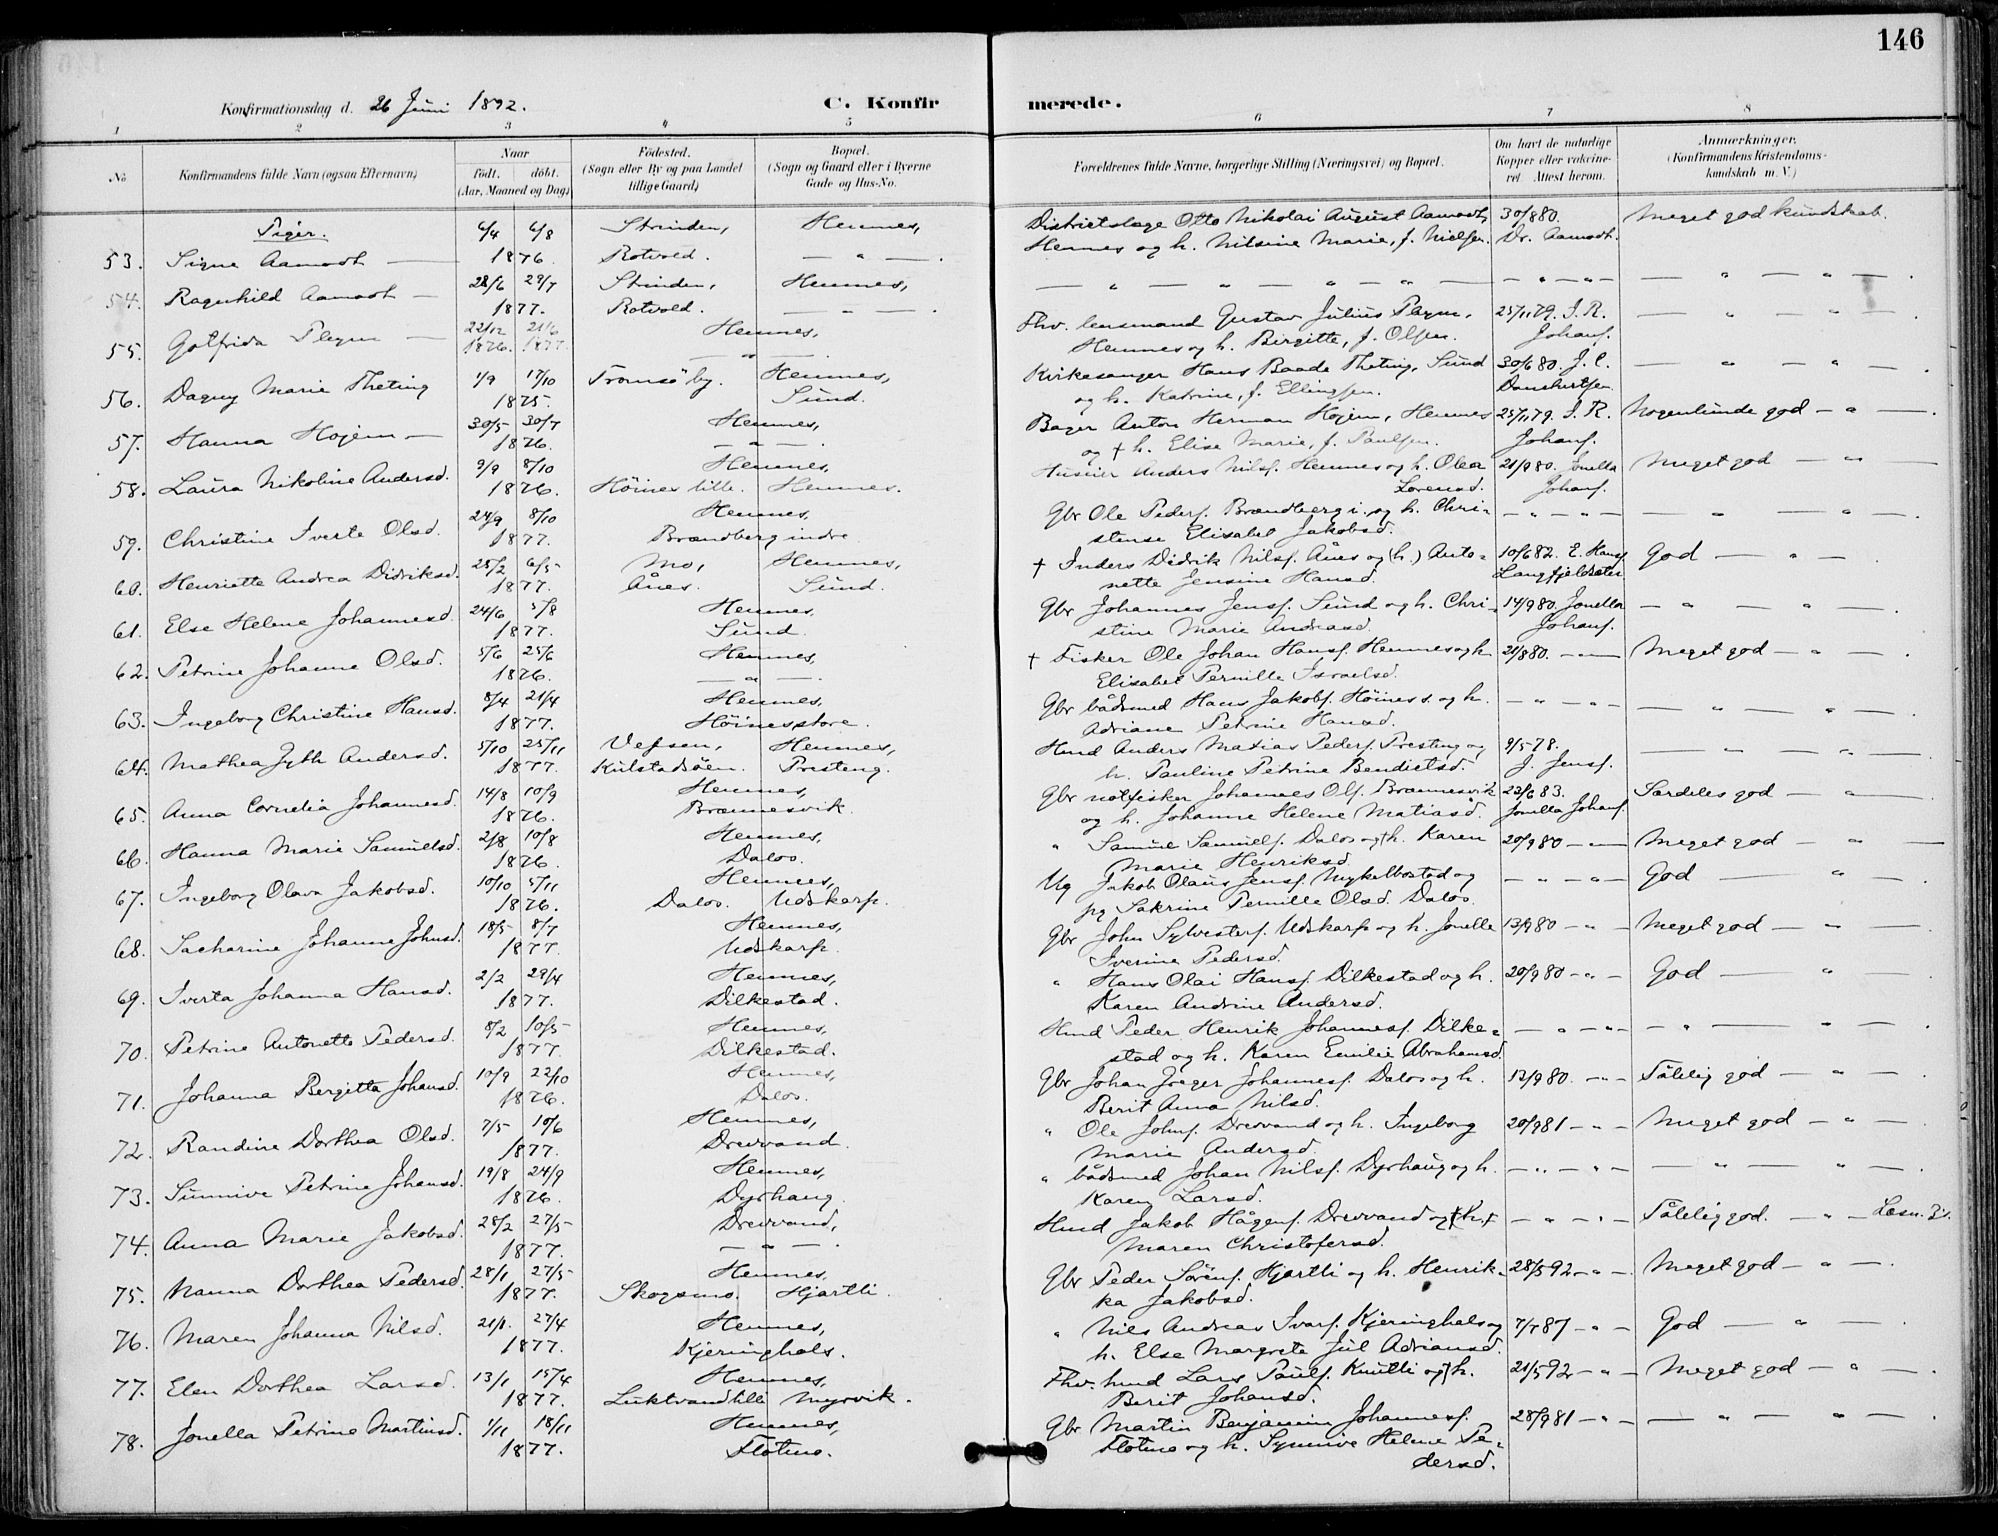 146
Konfirmationsdag d. 26 Juni 1892. C. Konfirmerede.
1 2 3 4 5 6 7 8
No Konfirmandens fulde Navn (ogsaa Efternavn) Naar født. døbt. (Aar, Maaned og Dag) Fødested. (Sogn eller By og paa Landet tillige Gaard) Bopæl. (Sogn og Gaard eller i Byerne Gade og Hus-No. Forældrenes fulde Navne, borgerlige Stilling (Næringsvei) og Bopæl. Om havt de naturlige Kopper eller vakcineret. Attest herom. Anmærkninger. (Konfirmandens Kristendomskundskab m. V.)
Piger. 6/4 6/8 Strinden, Hemnes, Districtslæge Otto Nikolai August Aamodt, 30/8 80. Meget god kundskab.
53. Signe Aamodt — 1876. Rotvold. — " — . Hemnes og h. Nilsine Marie, f. Nielsen. Dr. Aamodt.
54. Ragnhild Aamodt — 28/6 29/7 Strinden, Hemnes, — " — " — " — " — — " — " — — " — " — .
1877. Rotvold. — " — .
55. Gotfrida Plejm — 22/12 21/6 Hemnes, Fhv. lensmand Gustav Julius Plejm, 25/11 79. I. R. — " — " — .
1876. 1877. — " — . Hemnes og h. Birgitte, f. Olsen. Johans.
56. Dagny Marie Theting 1/9 17/10 Tromsö by. Hemnes, Kirkesanger Hans Baade Theting, Sund 30/6 80. J. C. — " — " — .
1875. Sund. og h. Katrine, f. Ellingsen. Danlurtsen
57. Hanna Hojem — 30/5 30/7 Hemnes, Bager Anton Herman Hojem, Hemnes 25/11 79. I. R. Nogenlunde god — " — .
1876. — " — . og † h. Elise Marie, f. Paulsen. Johans.
58. Laura Nikoline Andersd. 9/9 8/10 Hemnes, Husmer Anders Nilss. Hemnes og h. Olea 21/9 80. Jonetta Meget god — " —
1876. Höines lille. Hemnes. Lorensd. Johans.
59. Christine Iverte Olsd. 24/9 8/10 Hemnes, Gbr Ole Peders. Brændberg i. og h. Chri- — " — " — — " — " — .
1877. Brændberg indre stense Elisabet Jakobsd.
60. Henriette Andrea Didriksd. 25/2 6/5 Mo, Hemnes, † Inders Didrik Nilss. Ånes og (h.) Anto- 10/6 82. E. Hans God — " — .
1877. Ånes. Sund. nette Jensine Hansd. Langfjeldsæter
61. Else Helene Johannesd. 24/6 5/8 Hemnes, Gbr Johannes Jenss. Sund og h. Chri- 14/9 80. Jonetta — " — " — .
1877. Sund. stine Marie Andreasd. Johans.
62. Petrine Johanne Olsd. 5/6 25/6 Hemnes, † Fisker Ole Johan Hanss. Hemnes og h. 21/8 80. — " — Meget god — " — .
1876. — " — . Elisabet Pernille Israelsd.
63. Ingeborg Christine Hansd. 8/4 21/4 Hemnes, Gbr bådsmed Hans Jakobs. Höines s. og h. — " — " — — " — " — .
1877. Höines store. Adriane Petrine Hansd.
64. Mathea Jyth Andersd. 5/10 25/11 Vefsen, Hemnes, Hmd Anders Matias Peders. Presteng og 9/5 78. — " — " — .
1877. Kulstadsöen. Presteng. h. Pauline Petrine Bendietsd. J. Jenss.
65. Anna Cornelia Johannesd. 14/8 10/9 Hemnes, Gbr notfisker Johannes Ols. Brennesvik 22/6 83. Særdeles god — " — .
1876. Brennesvik. og h. Johanne Helene Matiasd. Jonetta Johans
66. Hanna Marie Samuelsd. 2/8 10/8 Hemnes, " Samuel Samuels. Dalos og h. Karen 20/9 80 — " — Meget god — " —
1876. Dalos. Marie Henriksd.
67. Ingeborg Olava Jakobsd. 10/10 5/11 Hemnes, Ug Jakob Olaus Jenss. Mykelbostad og — " — " — God — " — .
1876. Dalos. Udskarp. pg Sakrine Pernille Olsd. Dalos.
68. Sacharine Johanne Johnsd. 18/5 8/7 Hemnes, Gbr John Sylvesters. Udskarp og h. Jonelle 13/9 80 — " — Meget god — " — .
1877. Udskarp. Iverine Pedersd.
69. Iverta Johanna Hansd. 2/2 29/4 Hemnes, " Hans Olai Hanss. Dilkestad og h. 20/9 80 — " — God — " — .
1877. Dilkestad. Karen Andrine Andersd.
70. Petrine Antonette Pedersd. 8/2 10/5 Hemnes, Hmd Peder Henrik Johanness. Dilke- — " — " — — " — " — .
1877. Dilkestad. stad og h. Karen Emilie Abrahamsd.
71. Johanna Bergitta Johansd. 10/9 22/10 Hemnes, Gbr Johan Jæger Johanness. Dalos og h. 13/9 80. — " — Tålelig god — " — .
1876. Dalos. Berit Anna Nilsd.
72. Randine Dorthea Olsd. 7/5 10/6 Hemnes, " Ole Johns. Drevvand og h. Ingeborg 20/9 81 — " — Meget god — " — .
1877. Drevvand. Marie Andersd.
73. Sunnive Petrine Johansd. 19/8 24/9 Hemnes, " bådsmed Johan Nilss. Dyrhaug og h. — " — " — — " — " — .
1876. Dyrhaug. Karen Larsd.
74. Anna Marie Jakobsd. 28/2 27/5 Drevvand, Hmd Jakob Hågens. Drevvand og † h. † — " — " — Tålelig god. — " — Læsn. 3/2.
1877. — " — . Maren Christofersd.
75. Nanna Dorthea Pedersd. 28/1 27/5 Hemnes, Gbr Peder Sörens. Hjartli og h. Henrik- 28/5 92 — " — Meget god — " — .
1877. Skogsmo. Hjartli. ka Jakobsd.
76. Maren Johanna Nilsd. 21/1. 27/4 Hemnes, " Nils Andreas Ivars. Kjeringhals og 7/7 87 — " — God — " — .
1877. Kjeringhals. h. Else Margrete Jul Adriansd.
77. Elen Dorthea Larsd. 13/1 15/4 Hemnes, Fhv. hmd Lars Pauls. Knutli og † h. 21/5 92 — " — Meget god — " — .
1877. Luktvandlille Myrvik. Berit Johansd.
78. Jonella Petrine Martinsd. 1/11 18/11 Hemnes, Gbr Martin Benjamin Johanness. 28/9 81 — " — — " — " — .
1877. Flotmo. Flotmo og h. Synnive Helene Pe-
dersd.